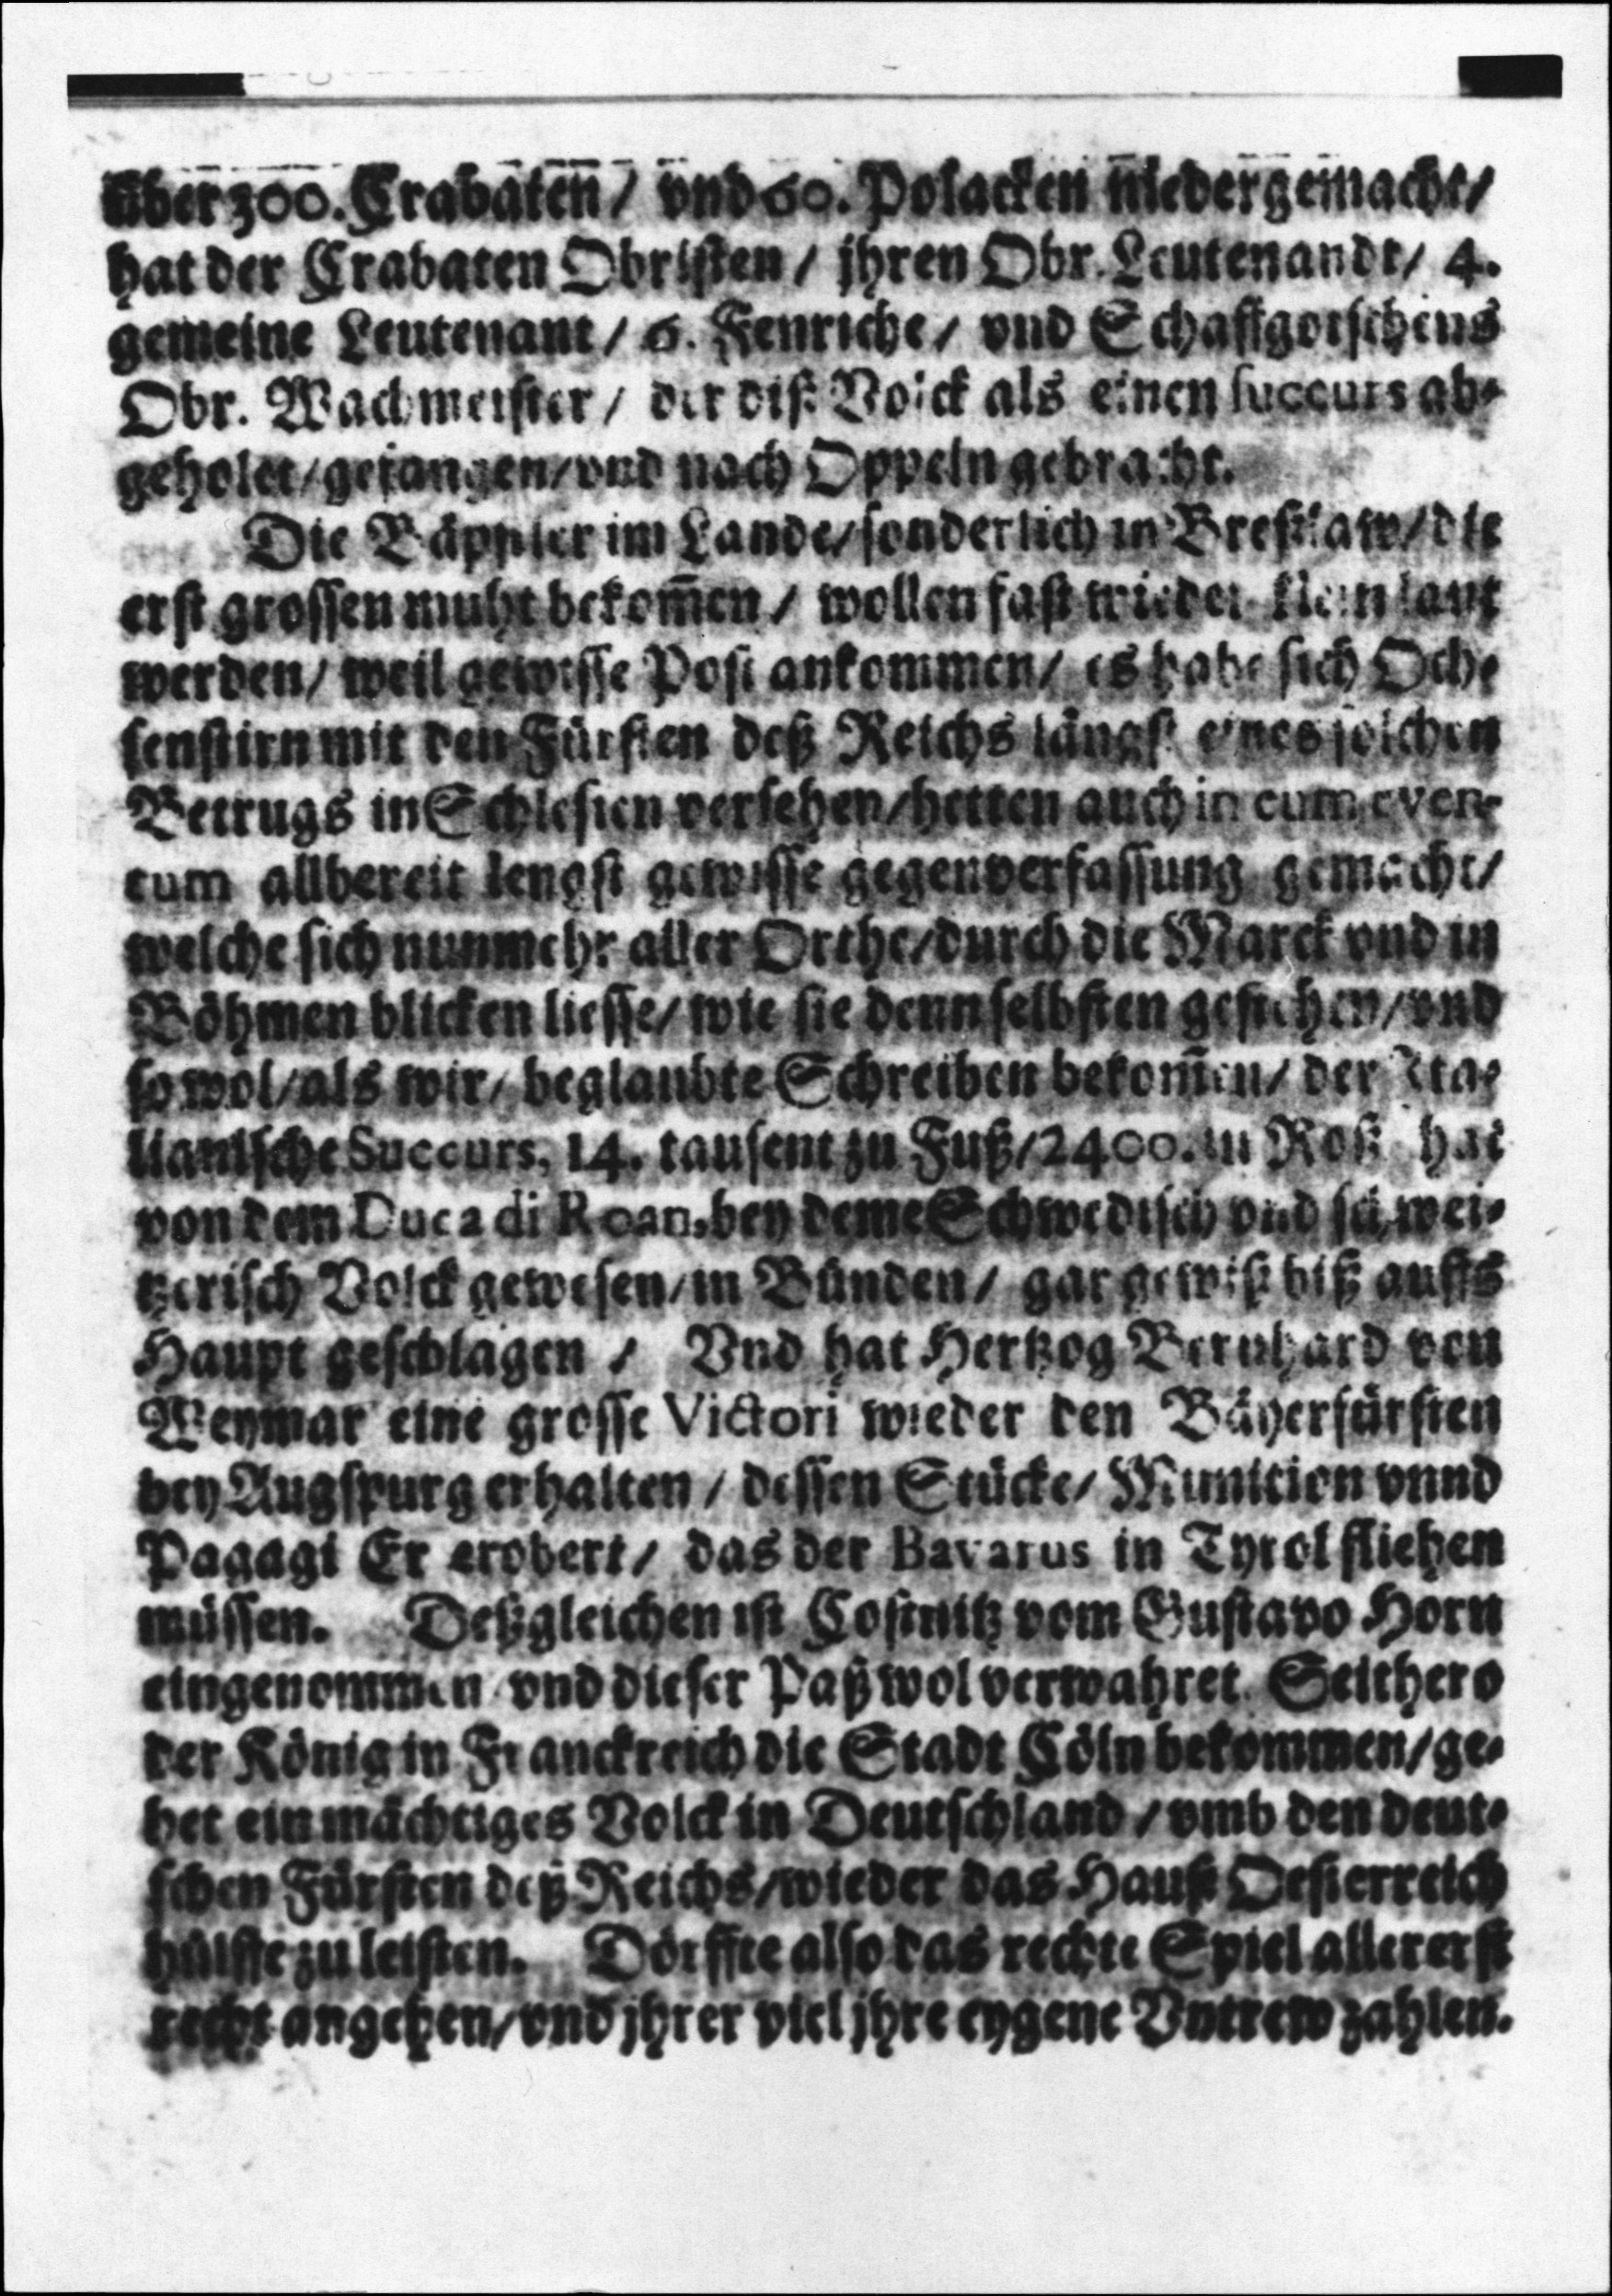 über 300. Crabaten / vnd 60. Polacken niedergemacht /
hat der Crabaten Obristen / jhren Obr. Leutenandt / 4.
gemeine Leutenant / 6. Fenriche / vnd Schaffgotschens
Obr. Wachmeister / der diß Volck als einen succurs ab-
geholet / gefangen / vnd nach Oppeln gebracht.
Die Päppler im Lande / sonderlich in Breßlaw / die
erst grossen muht bekom̃en / wollen fast wieder kleinlaut
werden / weil gewisse Post ankommen / es habe sich Och-
senstirn mit den Fürsten deß Reichs längst eines solchen
Betrugs in Schlesien versehen / hetten auch in eum even-
tum allbereit lengst gewisse gegenverfassung gemacht /
welche sich nunmehr aller Orthe / durch die Marck vnd in
Böhmen blicken liesse / wie sie denn selbsten gestehen / vnd
so wol / als wir / beglaubte Schreiben bekom̃en / der Ita-
lianische Succurs, 14. tausent zu Fuß / 2400. zu Roß hat
von dem Duca di Roan, bey deme Schwedisch vnd schwei-
tzerisch Volck gewesen / in Bünden / gar gewiß biß auffs
Haupt geschlagen / Vnd hat Hertzog Bernhard von
Weymar eine grosse Victori wieder den Bäyerfürsten
bey Augspurg erhalten / dessen Stücke / Munition vnnd
Pagagi Er erobert / das der Bavarus in Tyrol fliehen
müssen. Deßgleichen ist Costnitz vom Gustavo Horn
eingenommen vnd dieser Paß wol verwahret. Seithero
der König in Franckreich die Stadt Cöln bekommen / ge-
het ein mächtiges Volck in Deutschland / vmb den deut-
schen Fürsten deß Reichs / wieder das Hauß Oesterreich
hülffe zu leisten. Dörffte also das rechte Spiel allererst
recht angehen / vnd jhrer viel jhre eygene Vntrew zahlen.